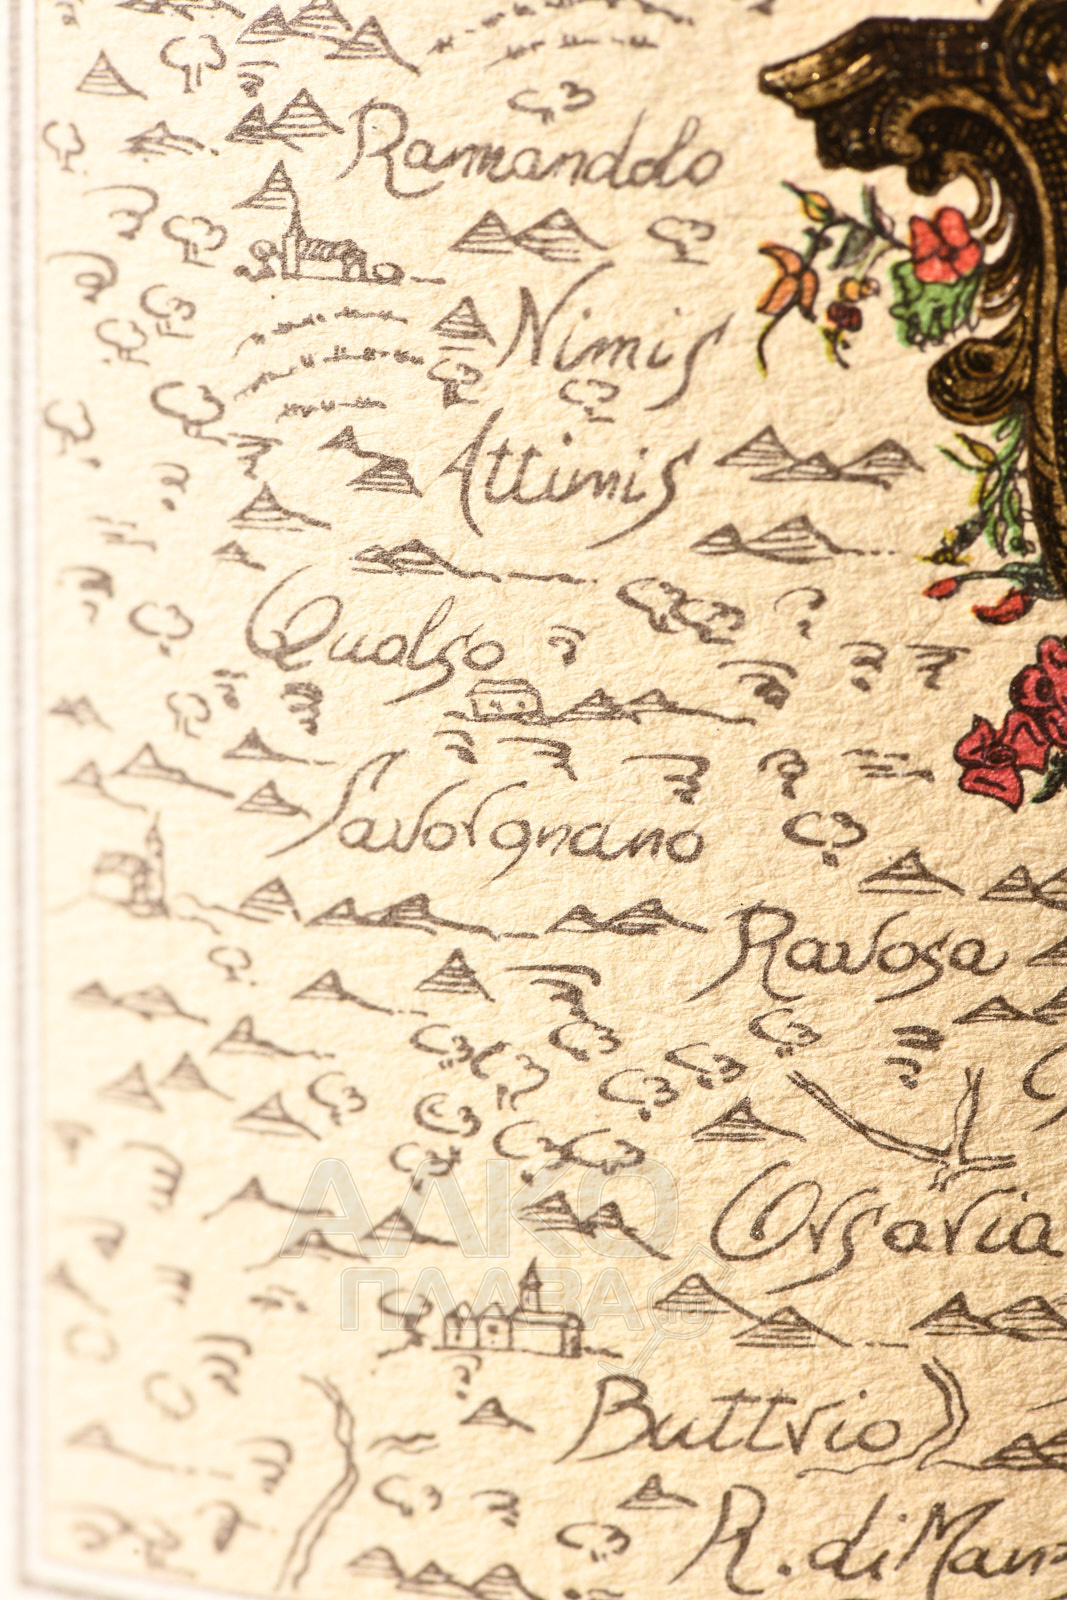 Ramandolo
Nimis
Attimis
Qualso
Savorgnano
Ravosa
Orsaria
АЛКО
ПЛАВА
Buttrio
R. di Man